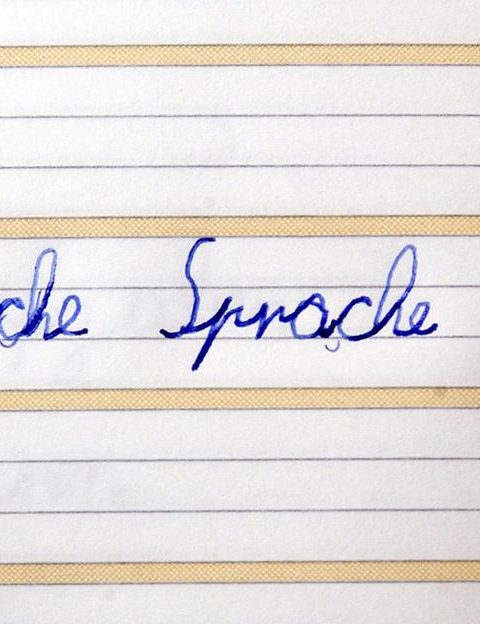 che Sprache